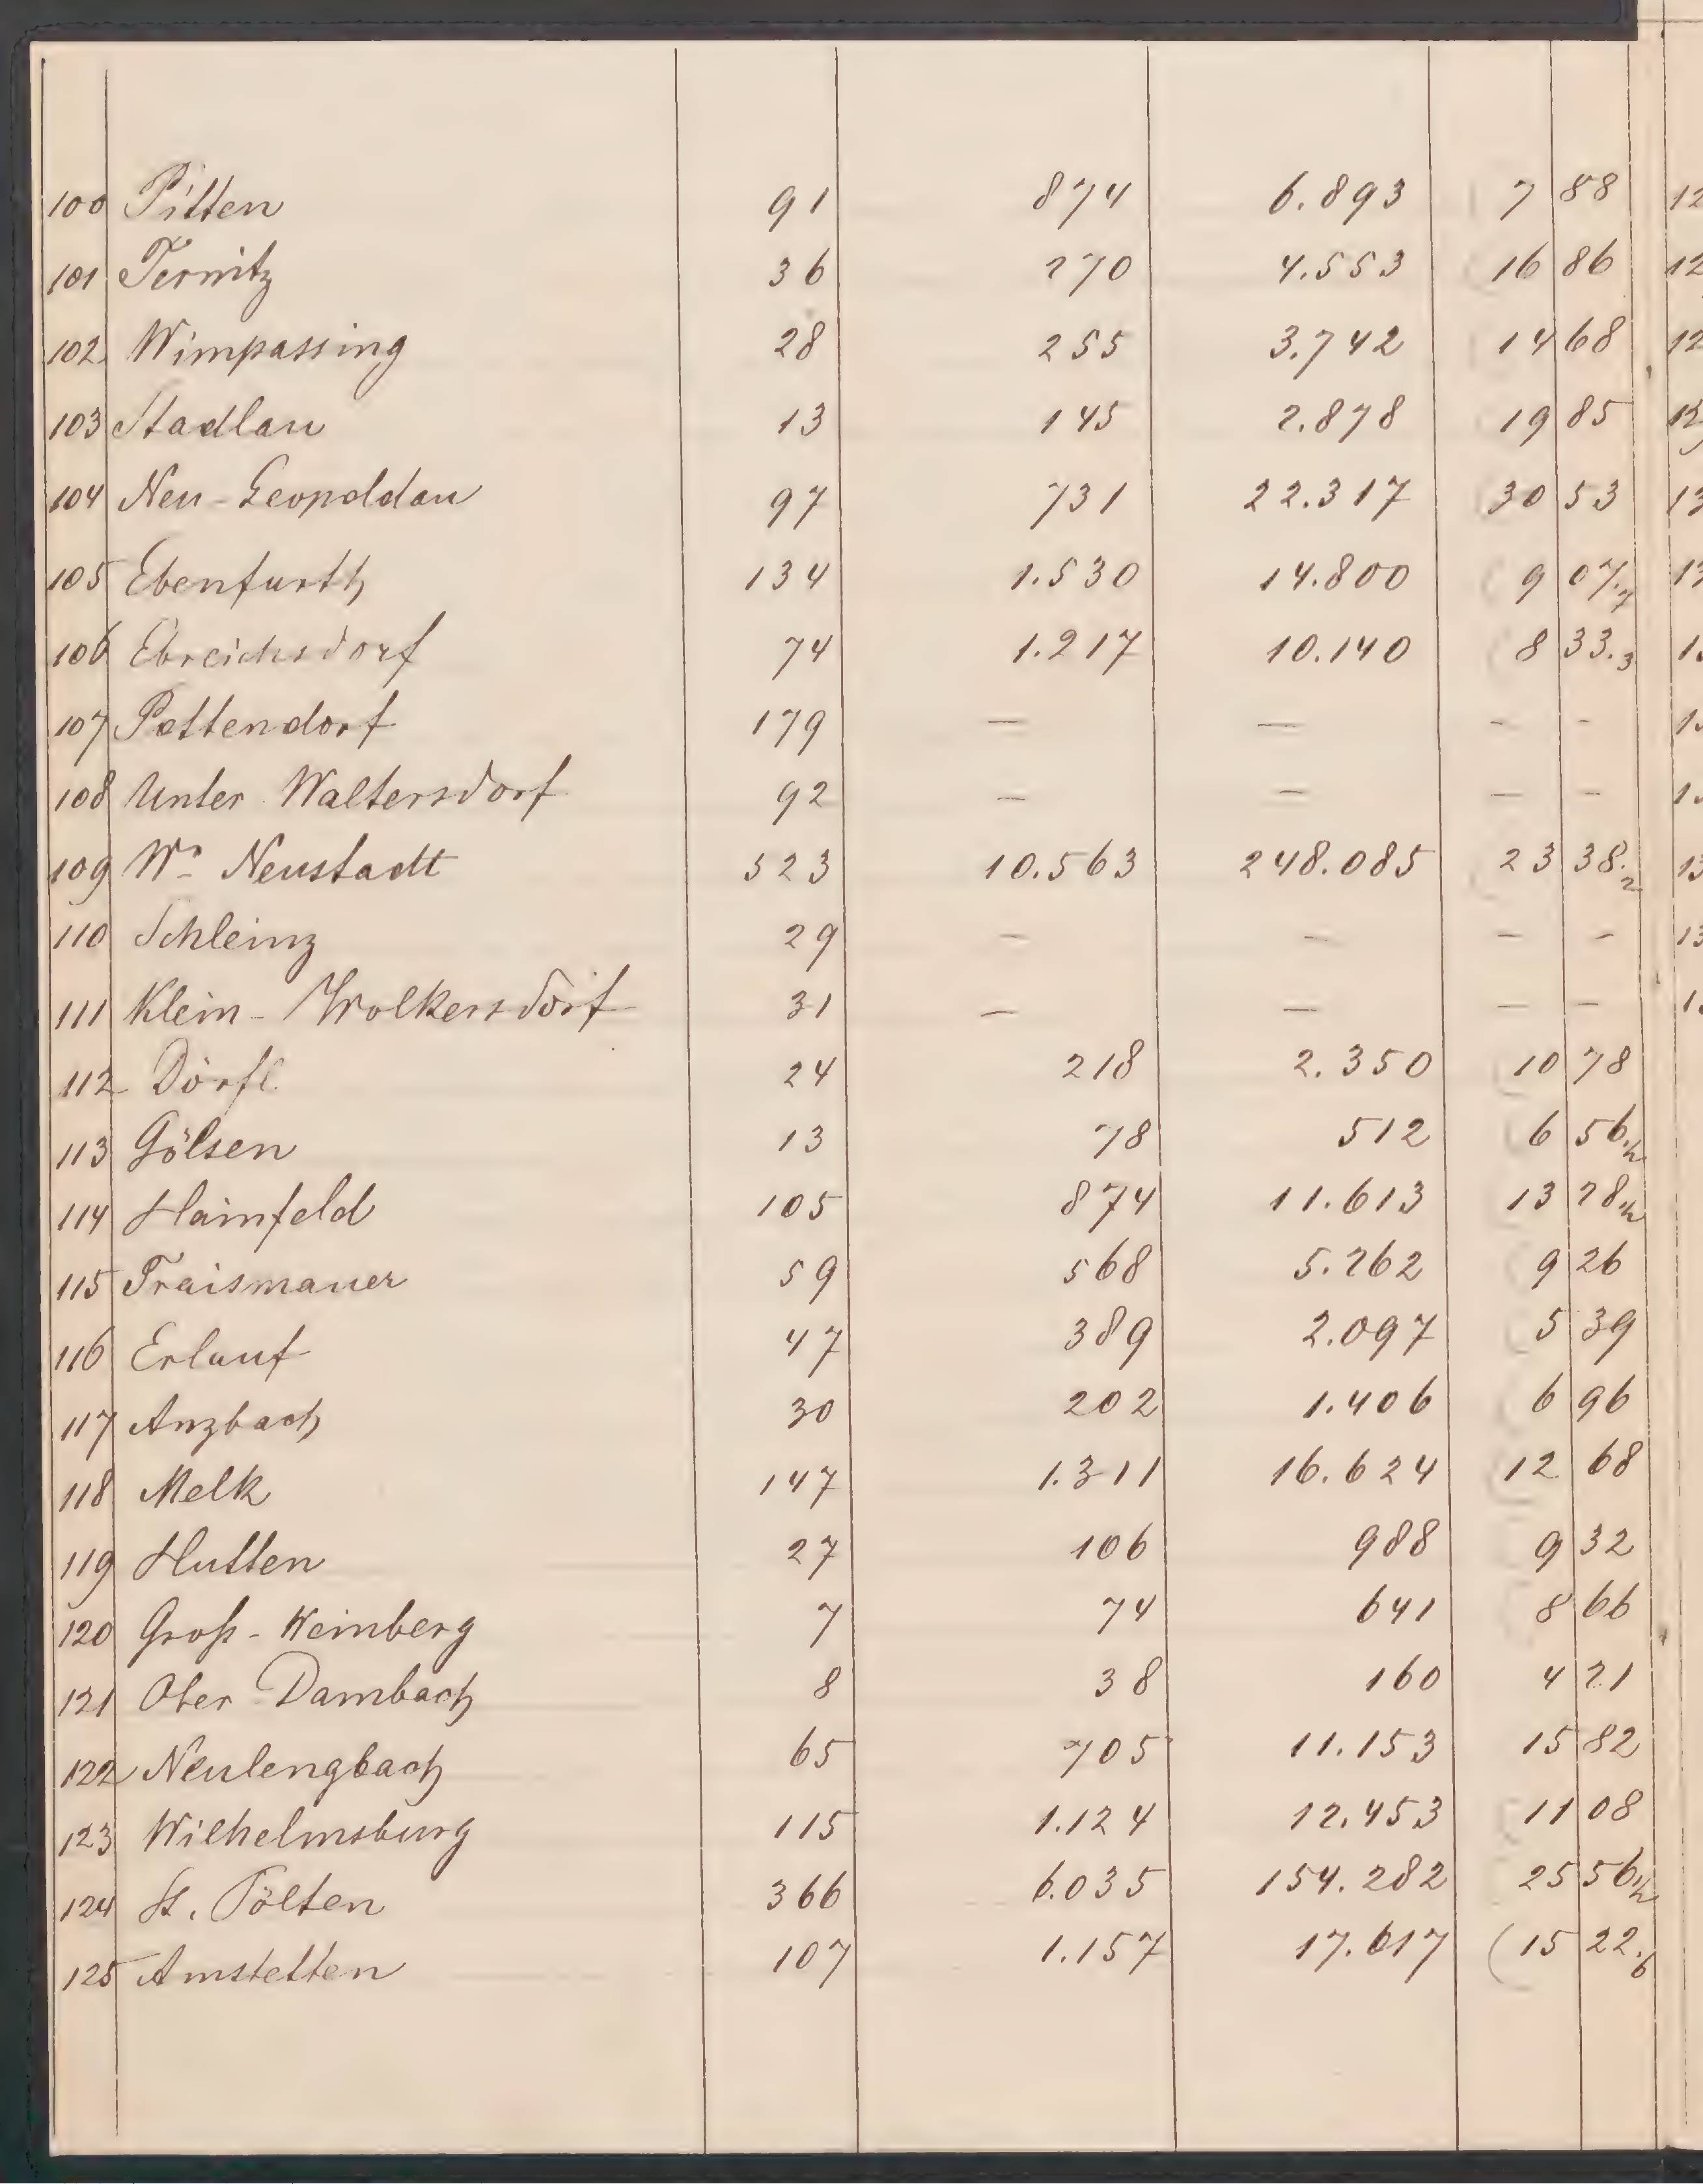 100 Pitten 91 874 6.893 7 88
101 Ternitz 36 270 4.553 16 86
102 Wimpassing 28 255 3.742 14 68
103 Stadlau 13 145 2.878 19 85
104 Neu-Leopoldau 97 731 22.317 30 53
105 Ebenfurth 134 1.530 14.800 9 07.7
106 Ebreichsdorf 74 1.217 10.140 8 33.3
107 Pottendorf 179 — — - -
108 Unter Waltersdorf 92 — — — -
109 Wr Neustadt 523 10.563 248.085 23 38.2
110 Schleinz 29 — — — -
111 Klein-Wolkersdorf 31 — — — —
112 Dörfl 24 218 2.350 10 78
113 Gölsen 13 78 512 6 56.½
114 Hainfeld 105 874 11.613 13 28.½
115 Traismauer 59 568 5.262 9 26
116 Erlauf 47 389 2.097 5 39
117 Anzbach 30 202 1.406 6 96
118 Melk 147 1.311 16.624 12 68
119 Hutten 27 106 988 9 32
120 Groß-Weinberg 7 74 641 8 66
121 Ober Dambach 8 38 160 4 21
122 Neulengbach 65 705 11.153 15 82
123 Wilhelmsburg 115 1.124 12.453 11 08
124 St. Pölten 366 6.035 154.282 25 56.½
125 Amstetten 107 1.157 17.617 (15 22.6